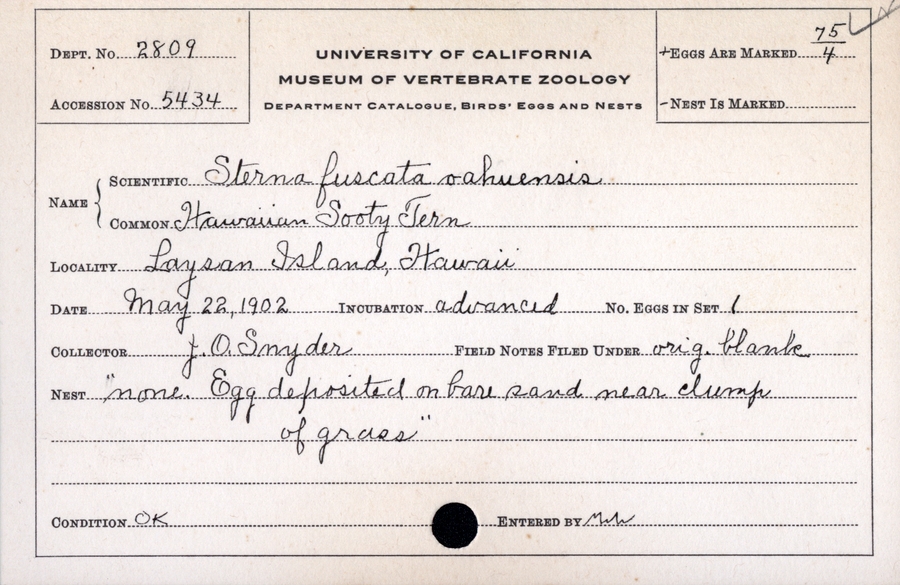 DEPT. No. 2809
ACCESSION No. 5434
UNIVERSITY OF CALIFORNIA
MUSEUM OF VERTEBRATE ZOOLOGY
DEPARTMENT CATALOGUE, BIRDS' EGGS AND NESTS
+EGGS ARE MARKED 75/4
-NEST IS MARKED
NAME { SCIENTIFIC Sterna fuscata oahuensis
COMMON Hawaiian Sooty Tern
LOCALITY Laysan Island, Hawaii
DATE May 22, 1902 INCUBATION advanced No. EGGS IN SET 1
COLLECTOR J. O. Snyder FIELD NOTES FILED UNDER orig. blank
NEST "none. Egg deposited on bare sand near clump
of grass"
CONDITION OK ENTERED BY